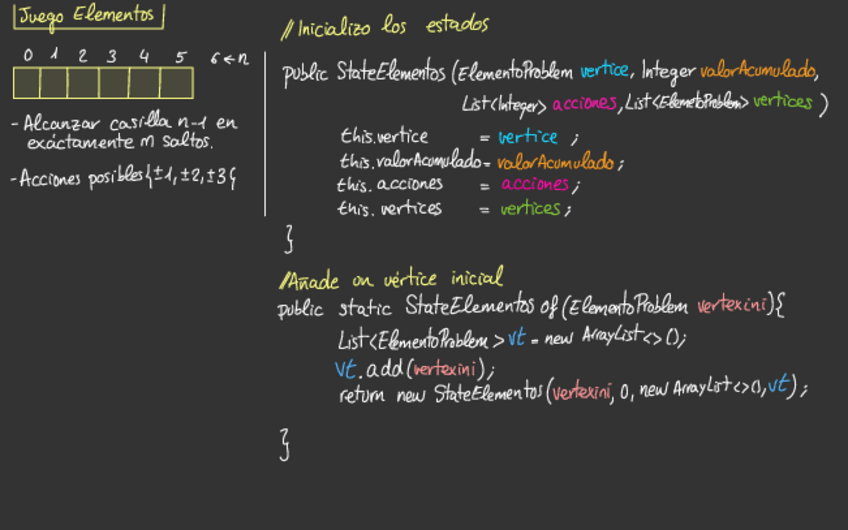 Juego Elementos
0 1 2 3 4 5 6 ← n
- Alcanzar casilla n-1 en
exáctamente m saltos.
- Acciones posibles {±1, ±2, ±3{
// Inicializo los estados
public StateElementos (ElementoProblem vertice, Integer valorAcumulado,
List<Integer> acciones, List<ElemetoProblem> vertices )
this.vertice = vertice ;
this.valorAcumulado = valorAcumulado ;
this. acciones = acciones ;
this. vertices = vertices ;
}
//Añade on vértice inicial
public static StateElementos of (ElementoProblem vertexini){
List<ElementoProblem> vt = new ArrayList<>();
vt.add(vertexini);
return new StateElementos(vertexini, 0, new ArrayList<>(), vt);
}